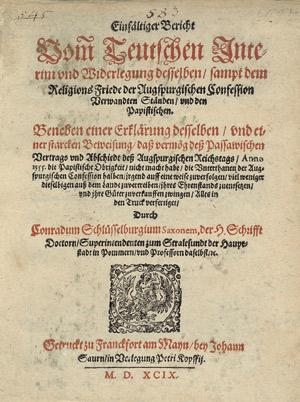 545 583
Einfältiger Bericht
Vom̃ Teutschen Inte
rim vnd Widerlegung desselben / sampt dem
Religions Friede der Augspurgischen Confession
Verwandten Ständen / vnd den
Papistischen.
Beneben einer Erklärung desselben / vnd ei
ner starcken Beweisung / daß vermög deß Passawischen
Vertrags vnd Abschiedt deß Augspurgischen Reichstags / Anno
1555. die Papistische Obrigkeit / nicht macht habe / die Vnterthanen der Aug-
spurgischen Confession halben / jrgend auff eine weise zuverfolgen / viel weniger
dieselbigen auß dem Lande zuvertreiben / jhres Ehrenstands zuentsetzen /
vnd jhre Güter zuverkauffen zwingen / Alles in
den Truck verfertiget /
Durch
Conradum Schlüsselburgium Saxonem, der H. Schrifft
Doctorn / Superintendenten zum Stralesundt der Haupt-
stadt in Pommern / vnd Professorn daselbst / ec.
Getruckt zu Franckfort am Mayn / bey Johann
Saurn / in Verlegung Petri Kopffij.
M. D. XCIX.